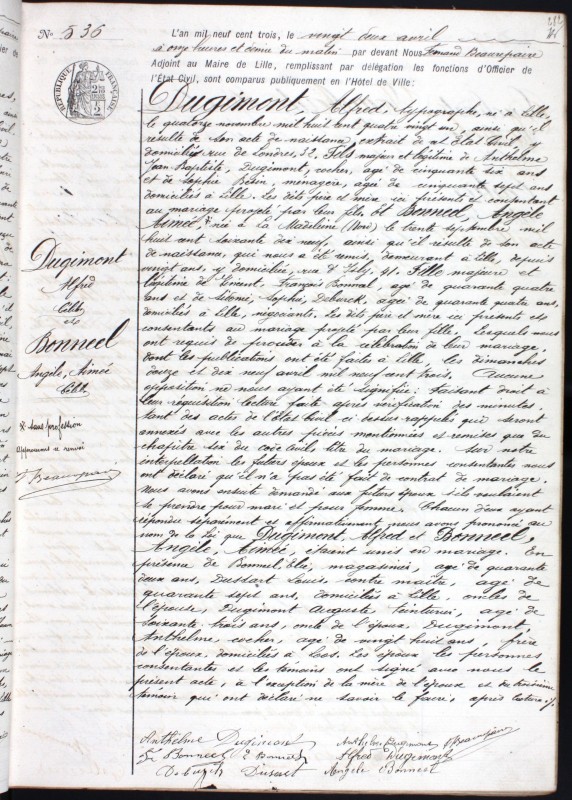 No 536
L'an mil neuf cent trois, le vingt deux avril
à onze heures et demie du matin par devant Nous, Fernand Beaurepaire
Adjoint au Maire de Lille, remplissant par délégation les fonctions d'Officier de
l'Etat Civil, sont comparus publiquement en l'Hôtel de Ville:
Dugimont Alfred, typographe, né à Lille,
le quatorze novembre mil huit cent quatre vingt un, ainsi qu'il
résulte de son acte de naissance extrait de cet Etat Civil, y
domicilié, rue de Londres, 52, Fils majeur et légitime de Anthelme
Jean Baptiste, Dugimont, cocher, agé de cinquante six ans
et de Sophie ménagère, agée de cinquante sept ans
domiciliés à Lille. Les dits père et mère ici présents et consentant
au mariage projeté par leur fils, Et Bonneel, Angèle
Aimée née à La Madeleine (Nord) le trente septembre mil
huit cent soixante dix neuf, ainsi qu'il résulte de son acte
de naissance, qui nous a été remis, demeurant à Lille, depuis
vingt ans, y domiciliée, rue d'Isly, 41. Fille majeure et
légitime de Vincent, François Bonneel, agé de quarante quatre
ans et de Sophie, agée de quarante quatre ans,
domiciliés à Lille, négociants. Les dits père et mère ici présents et
consentants au mariage projeté par leur fille. Lesquels nous
ont requis de procéder à la célébration de leur mariage,
dont les publications ont été faites à Lille, les dimanches
douze et dix neuf avril mil neuf cent trois. Aucune
opposition ne nous ayant été signifiée: faisant droit à
leur réquisition lecture faite après vérification des minutes
tant des actes de l'Etat Civil ci dessus rappelés qui seront
annexés avec les autres pièces mentionnées et remises que du
chapitre six du code civil, titre du mariage. Sur notre
interpellation les futurs époux et les personnes consentantes nous
ont déclaré qu'il n'a pas été fait de contrat de mariage.
Nous avons ensuite demandé aux futurs époux s'ils voulaient
se prendre pour mari et pour femme. Chacun d'eux ayant
répondu séparément et affirmativement, nous avons prononcé au
nom de la Loi que Dugimont, Alfred et Bonneel,
Angèle, Aimée, étaient unis en mariage. En
présence de Bonneel Elie, magasinier, agé de quarante
deux ans, Dussart Louis, contre maître, agé de
quarante sept ans, domiciliés à Lille, oncles de
l'épouse, Dugimont Auguste teinturier, agé de
soixante trois ans, oncle de l'époux, Dugimont
Anthelme cocher, agé de vingt huit ans, frère
de l'époux, domiciliés à Loos. Les époux les personnes
consentantes et les témoins ont signé avec nous le
présent acte, à l'exception de la mère de l'époux et du troisième
témoin qui ont déclaré ne savoir le faire, après lecture.
Dugimont
Alfred
Célib
et
Bonneel
Angèle, Aimée
Célib
sans profession
Approuvons le renvoi
F Beaurepaire
Anthelme Dugimont
Dugimont
F Beaurepaire
Bonneel E Bonneel
Alfred Dugimont
Dussart
Angèle Bonneel